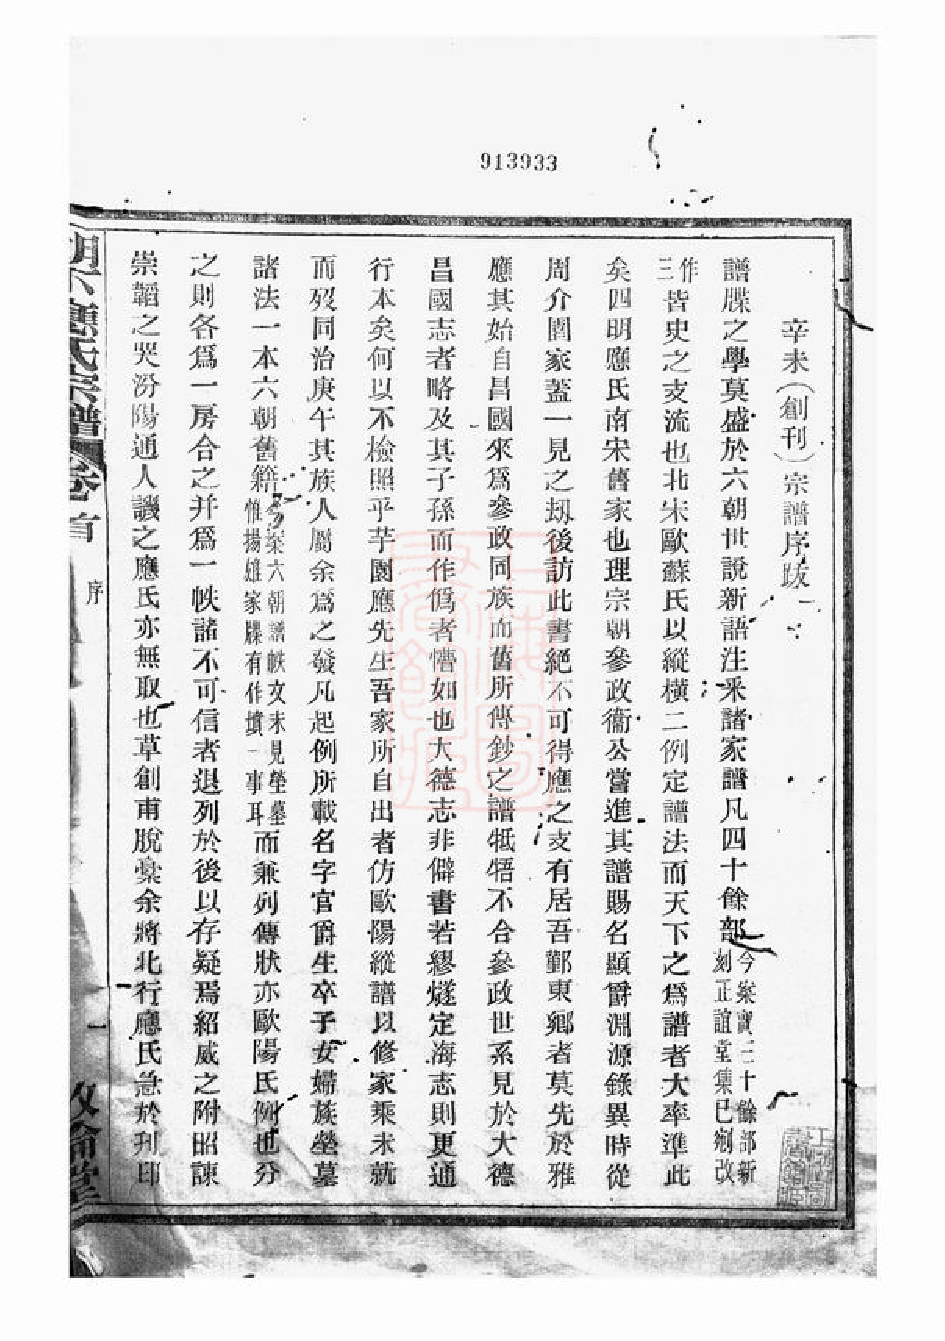 913933
辛未(創刊)宗譜序跋一
譜牒之學莫盛於六朝世說新語注釆諸家譜凡四十餘部今案實三十餘部新刻正誼堂集已剜改
作三皆史之支流也北宋歐蘇氏以縱橫二例定譜法而天下之爲譜者大率準此
矣四明應氏南宋舊家也理宗朝參政衞公嘗進其譜賜名顯爵淵源錄異時從
周介園家蓋一見之刼後訪此書絕不可得應之支有居吾鄞東鄉者莫先於雅
應其始自昌國來爲參政同族而舊所傳鈔之譜牴牾不合參政世系見於大德
昌國志者略及其子孫而作僞者懵如也大德志非僻書若繆燧定海志則更通
行本矣何以不檢照乎芋園應先生吾家所自出者仿歐陽縱譜以修家乘未就
而歿同治庚午其族人屬余爲之發凡起例所載名字官爵生卒子女婦族塋墓
諸法一本六朝舊籍今案六朝譜帙文未見塋墓惟揚雄家牒有作墳一事耳而兼列傳狀亦歐陽氏例也分
之則各爲一房合之并爲一帙諸不可信者退列於後以存疑焉紹威之附昭諫
崇韜之哭汾陽通人譏之應氏亦無取也草創甫脫稾余將北行應氏急於刋印
湖下應氏宗譜
卷首
序
一
敘倫堂